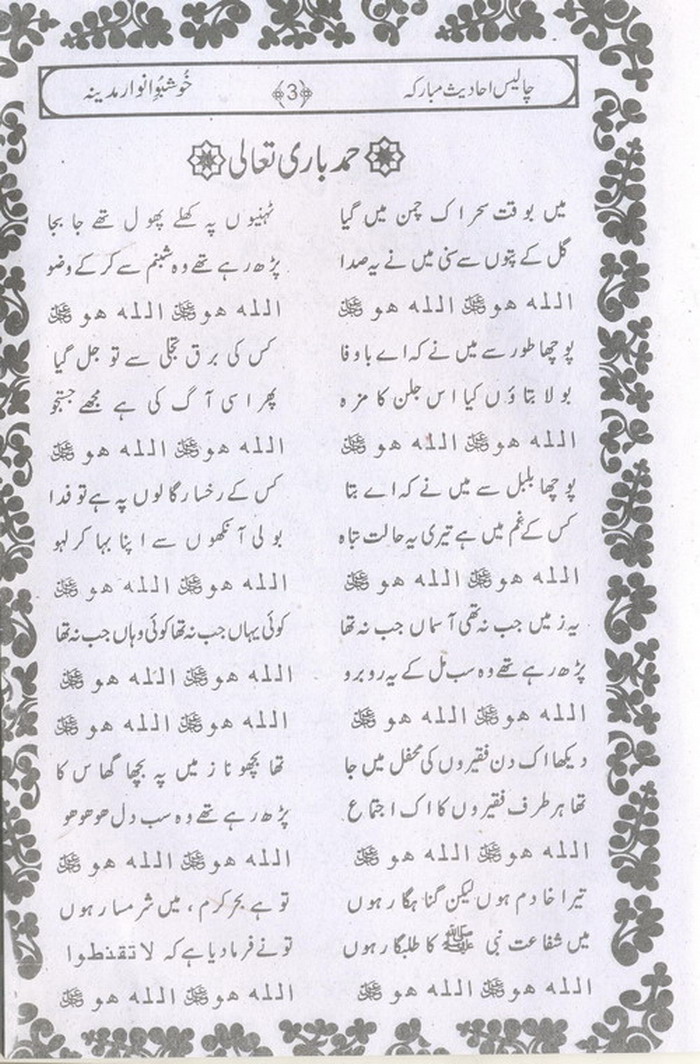 چالیس احادیث مبارکہ ﴿3﴾ خُوشبُؤِ انوار مدینہ
حمد باری تعالی
میں بوقت سحر اک چمن میں گیا ٹہنیوں پہ کھلے پھول تھے جا بجا
گل کے پتوں سے سنی میں نے یہ صدا پڑھ رہے تھے وہ شبنم سے کر کے وضو
اللہ ھو ﷻ اللہ ھو ﷻ اللہ ھو ﷻ اللہ ھو ﷻ
پوچھا طور سے میں نے کہ اے باوفا کس کی برق تجلی سے تو جل گیا
بولا بتاؤں کیا اس جلن کا مزہ پھر اسی آگ کی ہے مجھے جستجو
اللہ ھو ﷻ اللہ ھو ﷻ اللہ ھو ﷻ اللہ ھو ﷻ
پوچھا بلبل سے میں نے کہ اے بتا کس کے رخسار گالوں پہ ہے تو فدا
کس کے غم میں ہے تیری یہ حالت تباہ بولی آنکھوں سے اپنا بہا کر لہو
اللہ ھو ﷻ اللہ ھو ﷻ اللہ ھو ﷻ اللہ ھو ﷻ
یہ زمیں جب نہ تھی آسماں جب نہ تھا کوئی یہاں جب نہ تھا کوئی وہاں جب نہ تھا
پڑھ رہے تھے وہ سب مل کے یہ روبرو اللہ ھو ﷻ اللہ ھو ﷻ
اللہ ھو ﷻ اللہ ھو ﷻ اللہ ھو ﷻ اللہ ھو ﷻ
دیکھا اک دن فقیروں کی محفل میں جا تھا بچھونا زمیں پہ بچھا گھاس کا
تھا ہر طرف فقیروں کا اک اجتماع پڑھ رہے تھے وہ سب دل ھو ھو ھو
اللہ ھو ﷻ اللہ ھو ﷻ اللہ ھو ﷻ اللہ ھو ﷻ
تیرا خادم ہوں لیکن گناہگار ہوں تو ہے بحر کرم ، میں شرمسار ہوں
میں شفاعت نبی ﷺ کا طلبگار ہوں تو نے فرما دیا ہے کہ لا تقنطوا
اللہ ھو ﷻ اللہ ھو ﷻ اللہ ھو ﷻ اللہ ھو ﷻ